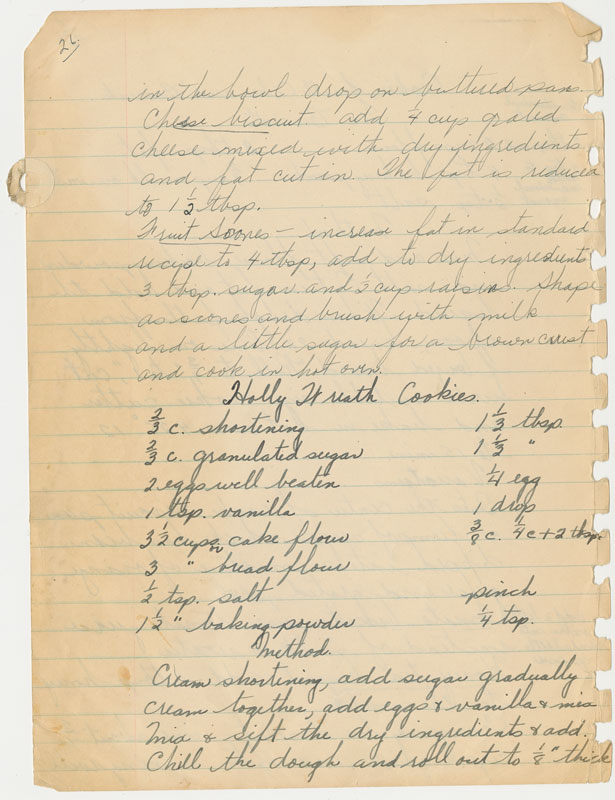 26.
in the bowl drop on buttered pans.
Cheese biscuit add 1/4 cup grated
cheese mixed with dry ingredients
and fat cut in. The fat is reduced
to 1 1/2 tbsp.
Fruit Scones – increase fat in standard
recipe to 4 tbsp, add to dry ingredients
3 tbsp. sugar and 1/2 cup raisins. Shape
as scones and brush with milk
and a little sugar for a brown crust
and cook in hot oven.
Holly Wreath Cookies.
2/3 c. shortening 1 1/3 tbsp.
2/3 c. granulated sugar 1 1/3 "
2 eggs well beaten 1/4 egg
1 tsp. vanilla 1 drop
3 1/2 cups cake flour or 3/8 c. 1/4 c + 2 tbsp.
3 " bread flour
1/2 tsp. salt pinch
1 1/2 " baking powder 1/4 tsp.
Method.
Cream shortening, add sugar gradually
cream together, add eggs & vanilla & mix
Mix & sift the dry ingredients & add.
Chill the dough and roll out to 1/8" thick